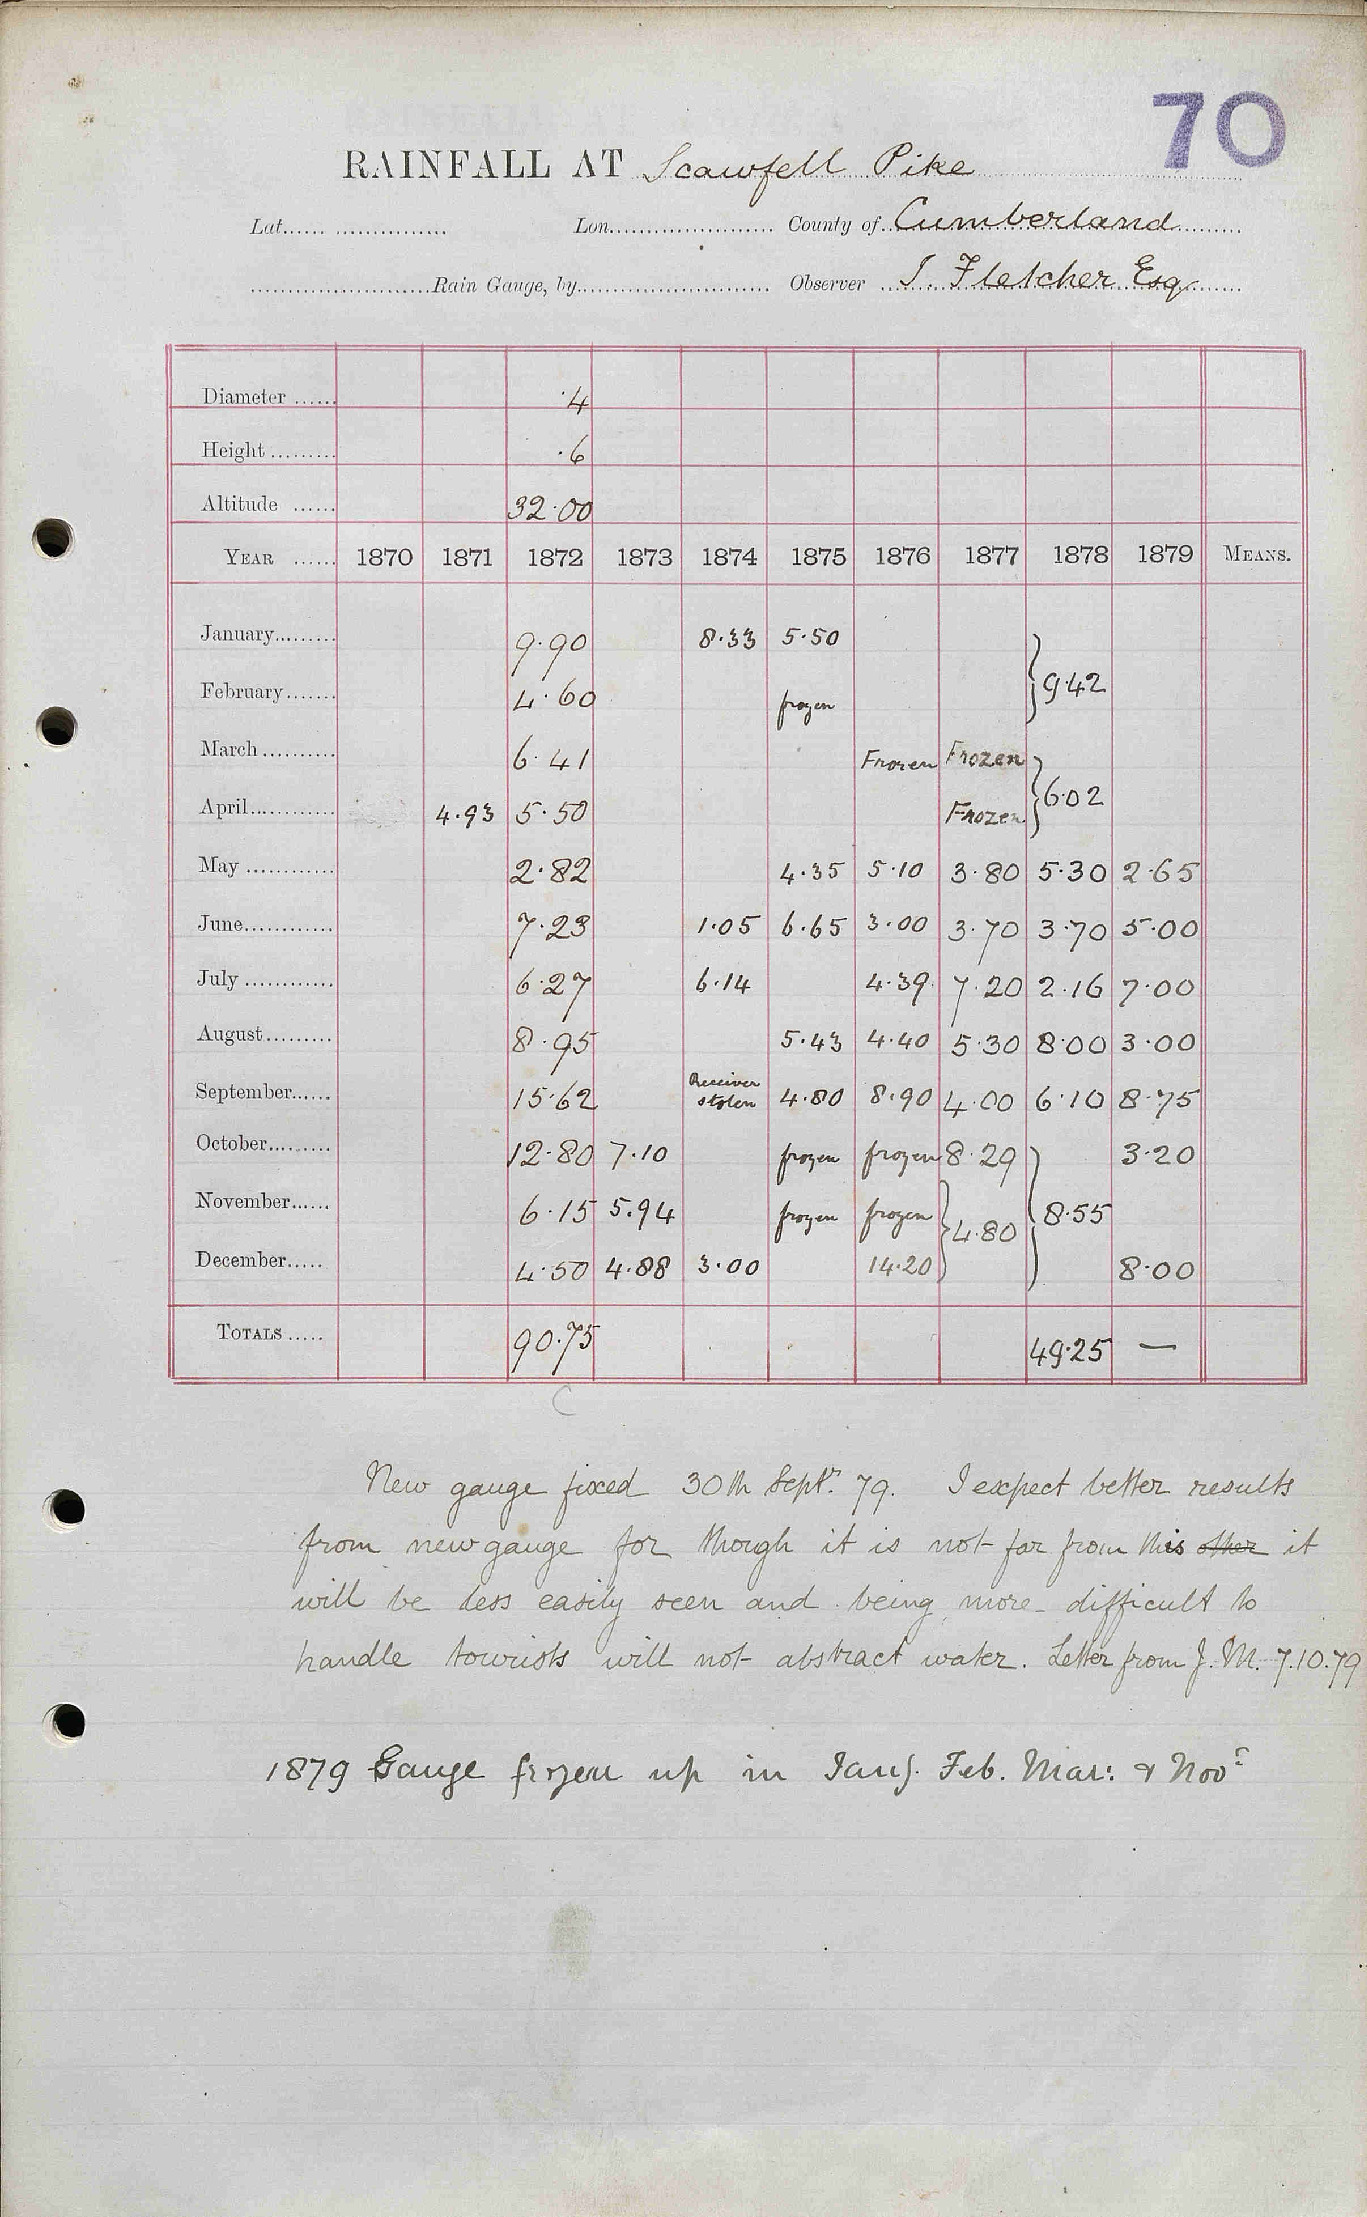 70
RAINFALL AT Scawfell Pike
Lat. Lon. County of Cumberland
Rain Gauge, by Observer I Fletcher Esq
Diameter ...... 4
Height ......... .6
Altitude ...... 32.00
YEAR ...... 1870 1871 1872 1873 1874 1875 1876 1877 1878 1879 MEANS.
January......... 9.90 8.33 5.50
February....... 4.60 frozen } 9.42
March .......... 6.41 Frozen Frozen
April............ 4.93 5.50 Frozen } 6.02
May ............ 2.82 4.35 5.10 3.80 5.30 2.65
June............ 7.23 1.05 6.65 3.00 3.70 3.70 5.00
July ............ 6.27 6.14 4.39 7.20 2.16 7.00
August......... 8.95 5.43 4.40 5.30 8.00 3.00
September...... 15.62 Receiver stolen 4.80 8.90 4.00 6.10 8.75
October......... 12.80 7.10 frozen frozen 8.29 3.20
November...... 6.15 5.94 frozen frozen } 4.80 } 8.55
December..... 4.50 4.88 3.00 14.20 8.00
TOTALS ..... 90.75 49.25 —
C
New gauge fixed 30th Septr. 79. I expect better results
from new gauge for though it is not far from this other it
will be less easily seen and being more difficult to
handle tourists will not abstract water. Letter from J. M. 7.10.79
1879 Gauge frozen up in Jany. Feb. Mar: & Novr